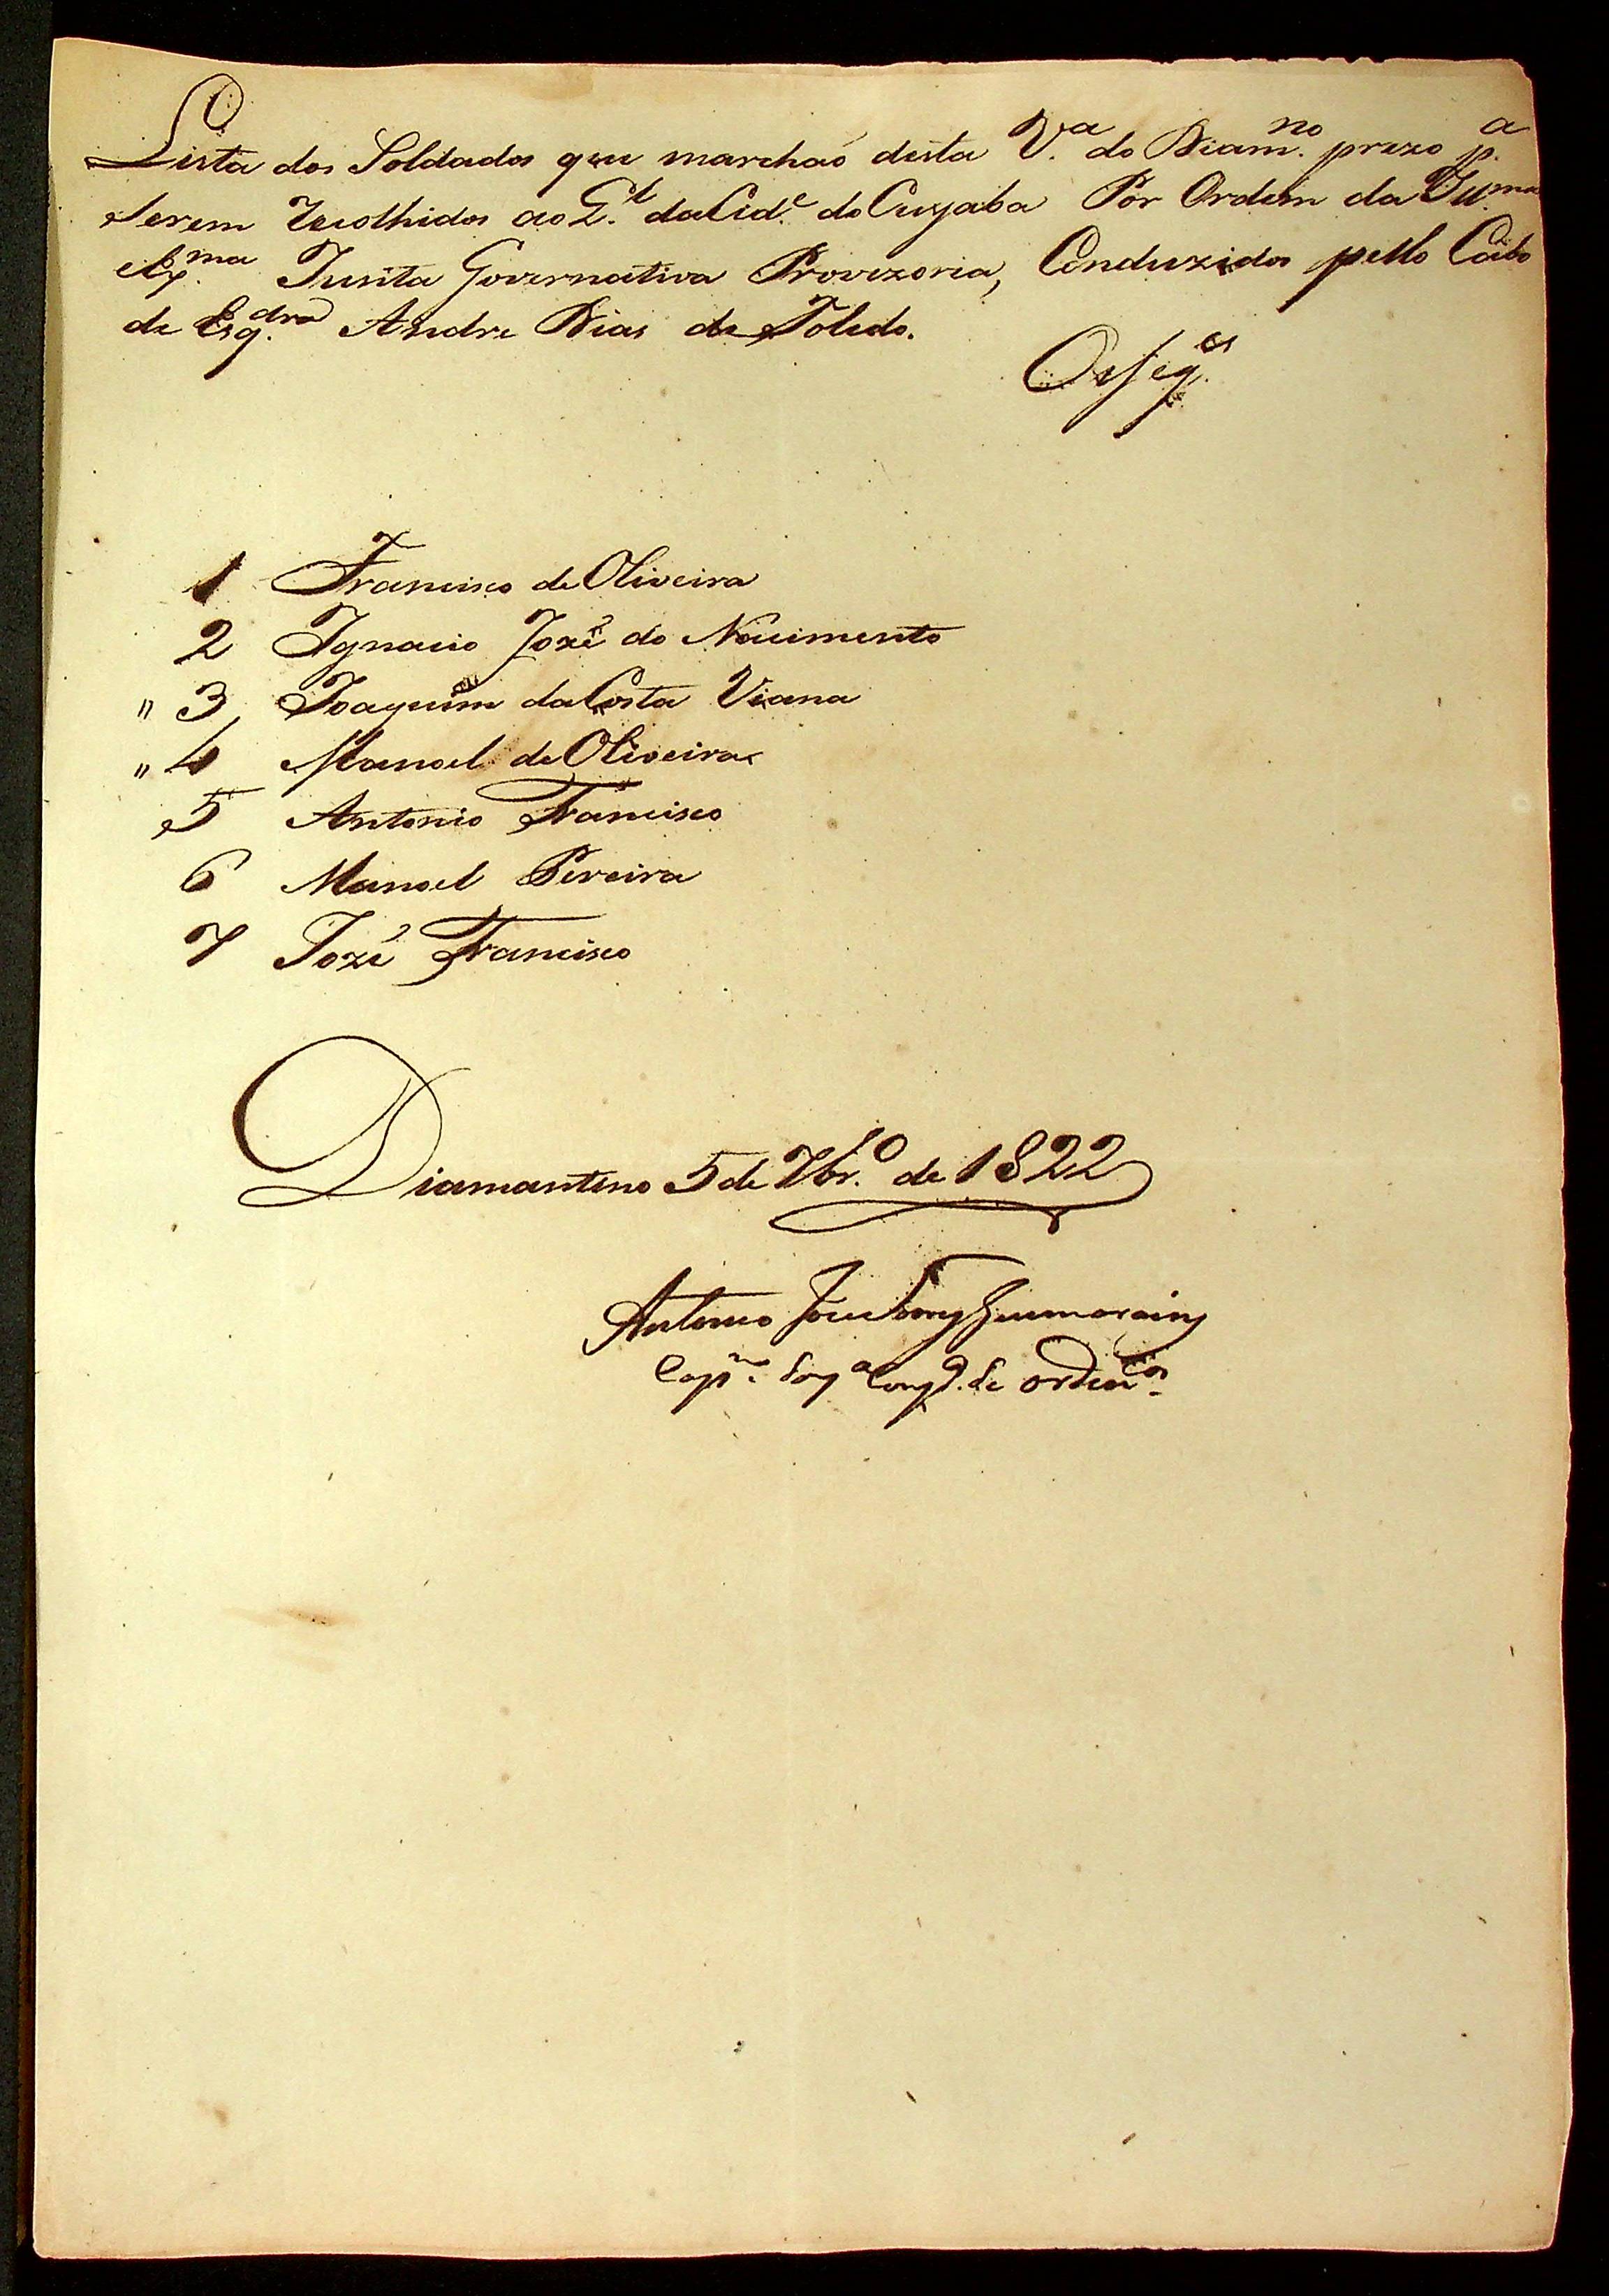 Lista dos Soldados que marchaõ desta V.ª do Diam.no prezo p.a
Serem Recolhidos ao Q.tl da Cid.e do Cuyaba Por Ordem da Ill.ma
Ex.ma Junta Governativa Provizoria, Conduzidos pello Cabo
de Esq.dra Andre Dias de Toledo.
Os seg.es
1 Francisco de Oliveira
2 Ignacio Jozé do Nacimento
" 3 Joaquim da Costa Viana
" 4 Manoel de Oliveira
5 Antonio Francisco
6 Manoel Pereira
7 Jozé Francisco
Diamantino 5 de 7br.o de 1822
Antonio Joze Guimaraiz
Cap.m de orden.ças